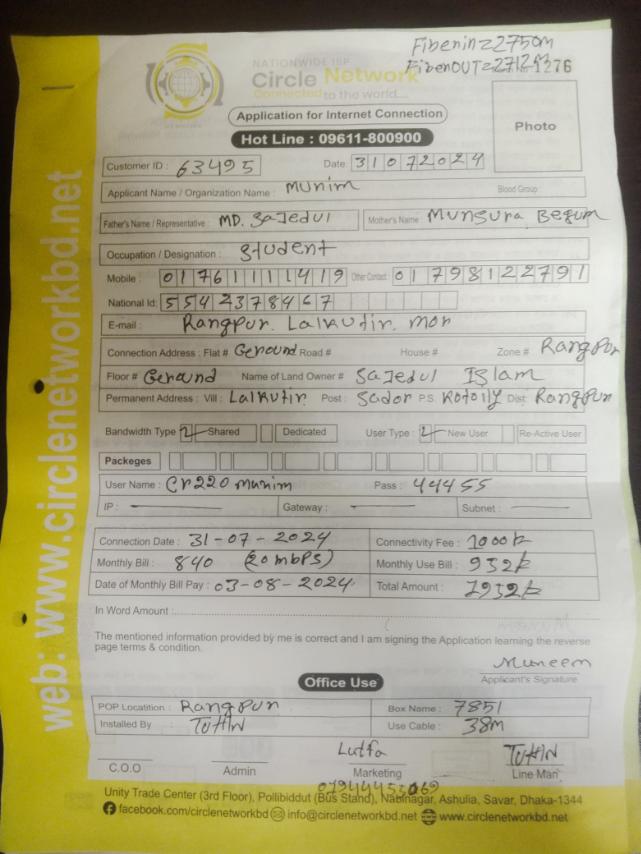 Fiberin=2750m
FiberOUT=2712M
1276
NATIONWIDE ISP
Circle Network
Connected to the world....
Application for Internet Connection
Hot Line : 09611-800900
Photo
Customer ID : 63495 Date: 31072024
Applicant Name / Organization Name : Munim Blood Group
Father's Name / Representative : MD. Sajedul Mother's Name : Munsura Begum
Occupation / Designation : Student
Mobile : 01761111419 Other Contact : 01798122791
National Id: 5542378467
E-mail : Rangpur. Lalkutir. mor
Connection Address : Flat # Geround Road # House # Zone # Rangpur
Floor # Geround Name of Land Owner # Sajedul Islam
Permanent Address : Vill : Lalkutir Post : Sador P.S. Kotolly Dist: Rangpur
Bandwidth Type Shared Dedicated User Type : New User Re-Active User
Packeges
User Name : Cr220munim Pass : 44455
IP : Gateway : Subnet :
Connection Date : 31-07-2024 Connectivity Fee : 1000
Monthly Bill : 840 (20mbps) Monthly Use Bill :
Date of Monthly Bill Pay : 03-08-2024 Total Amount :
In Word Amount :
The mentioned information provided by me is correct and I am signing the Application learning the reverse
page terms & condition.
Muneem
Applicant's Signature
Office Use
POP Locatition : Rangpur Box Name : 7851
Installed By TUHIN Use Cable : 38M
Lutfa TUHIN
C.O.O Admin Marketing Line Man
Unity Trade Center (3rd Floor), Pollibiddut (Bus Stand), Nabinagar, Ashulia, Savar, Dhaka-1344
facebook.com/circlenetworkbd info@circlenetwork.net www.circlenetworkbd.net
web: www.circlenetworkbd.net